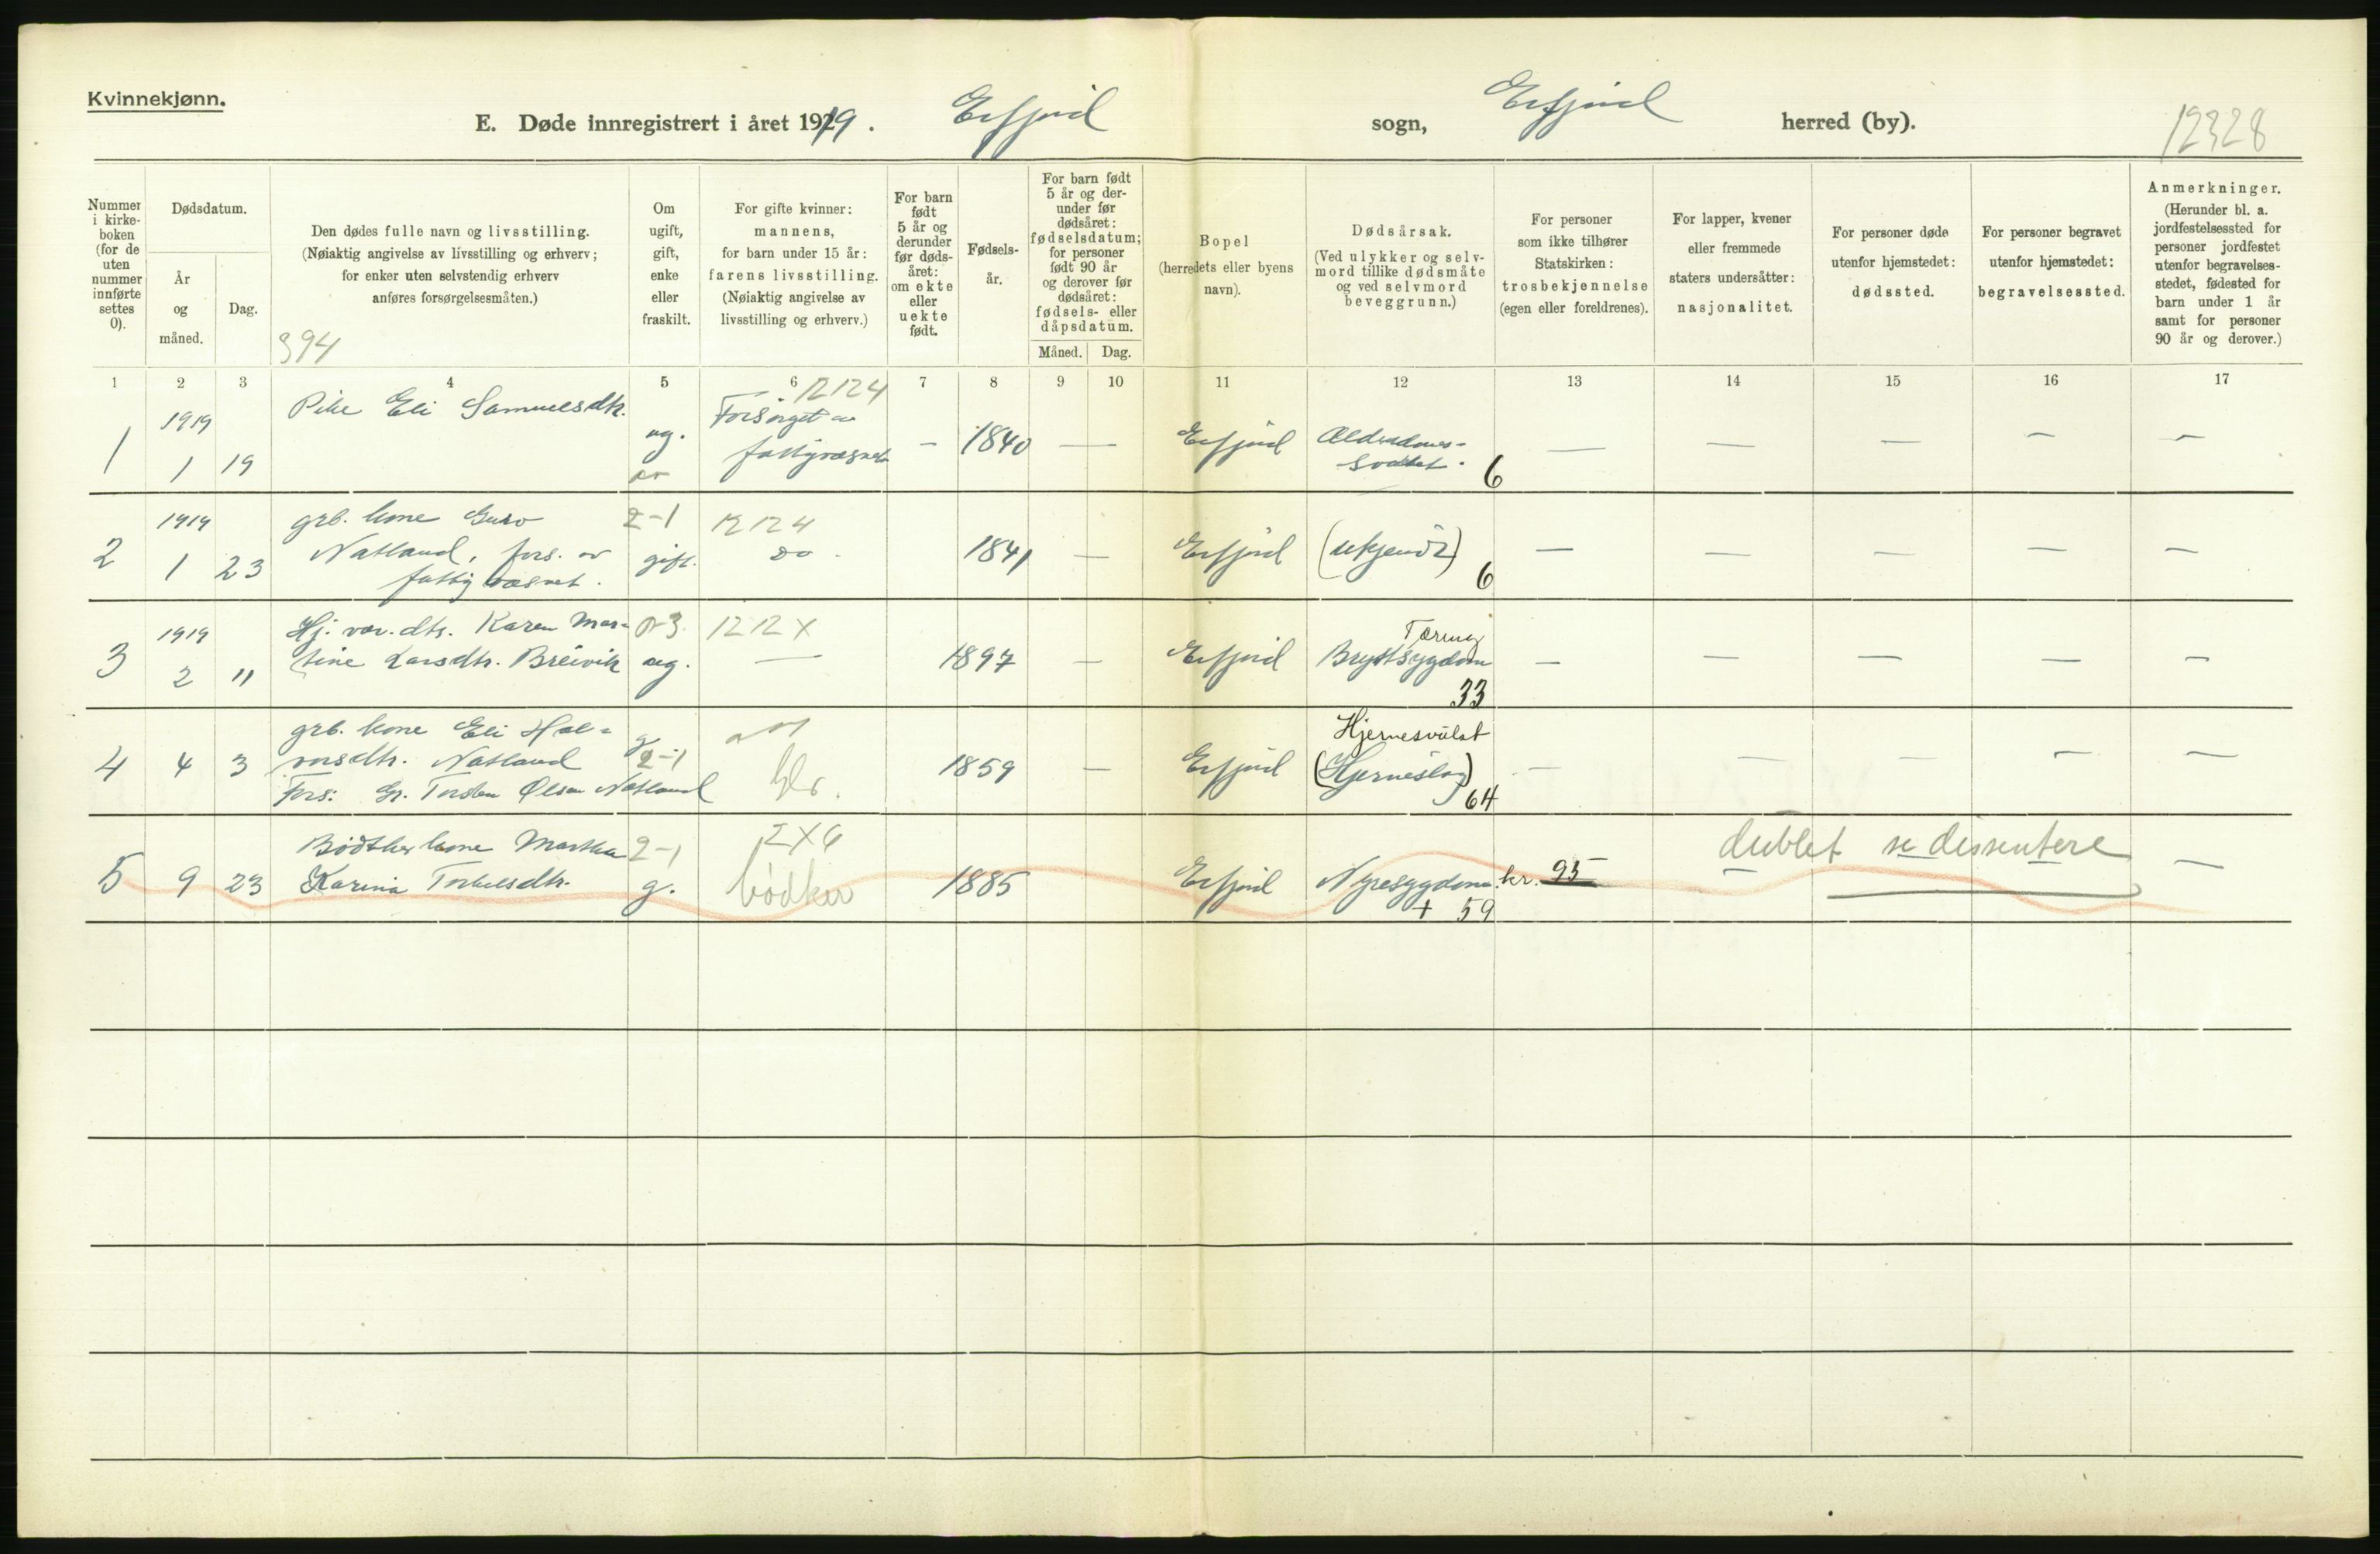 Kvinnekjønn.
E. Døde innregistrert i året 1919. Erfjord sogn, Erfjord herred (by).
12328
Nummer i kirkeboken (for de uten nummer innførte settes 0).
Dødsdatum.
År og måned.
Dag.
Den dødes fulle navn og livsstilling.
(Nøiaktig angivelse av livsstilling og erhverv;
for enker uten selvstendig erhverv
anføres forsørgelsesmåten.)
394
Om ugift, gift, enke eller fraskilt.
For gifte kvinner:
mannens,
for barn under 15 år:
farens livsstilling.
(Nøiaktig angivelse av
livsstilling og erhverv.)
For barn født 5 år og derunder før dødsåret: om ekte eller uekte født.
Fødselsår.
For barn født 5 år og derunder før dødsåret: fødselsdatum; for personer født 90 år og derover før dødsåret: fødsels- eller dåpsdatum.
Måned. Dag.
Bopel
(herredets eller byens
navn).
Dødsårsak.
(Ved ulykker og selv-
mord tillike dødsmåte
og ved selvmord
beveggrunn.)
For personer
som ikke tilhører
Statskirken:
trosbekjennelse
(egen eller foreldrenes).
For lapper, kvener
eller fremmede
staters undersåtter:
nasjonalitet.
For personer døde
utenfor hjemstedet:
dødssted.
For personer begravet
utenfor hjemstedet:
begravelsessted.
Anmerkninger.
(Herunder bl. a.
jordfestelsessted for
personer jordfestet
utenfor begravelses-
stedet, fødested for
barn under 1 år
samt for personer
90 år og derover.)
1 2 3 4 5 6 7 8 9 10 11 12 13 14 15 16 17
1 1919 1 19 Pike Eli Samuelsdtr. ug. 12124 Forsørget av fattigvæsnet – 1840 — Erfjord Alderdoms- svakhet. 6 — — — — —
2 1919 1 23 grb. kone Guro Natland, fors. av fattigvæsnet. 2-1 gift. 12124 Do 1841 — Erfjord (ukjendt) 6 — — — — —
3 1919 2 " Hj. vær. dtr. Karen Mar- tine Larsdtr. Breivik ug. 1212X — 1897 — Erfjord Tæring Brystsygdom 33 — — — — —
4 4 3 grb. kone Eli Hal- vorsdtr. Natland Fors: Gr. Torsten Olsen Natland g 2-1 1859 — Erfjord Hjernesvulst (Hjerneslag) 64 — — — — —
5 9 23 Bødtker kone Martha Karina Torkelsdtr. 2-1 g. 2X6 bødker 1885 Erfjord Nyresygdom. kr. 95 + 59 dublet se dissentere —